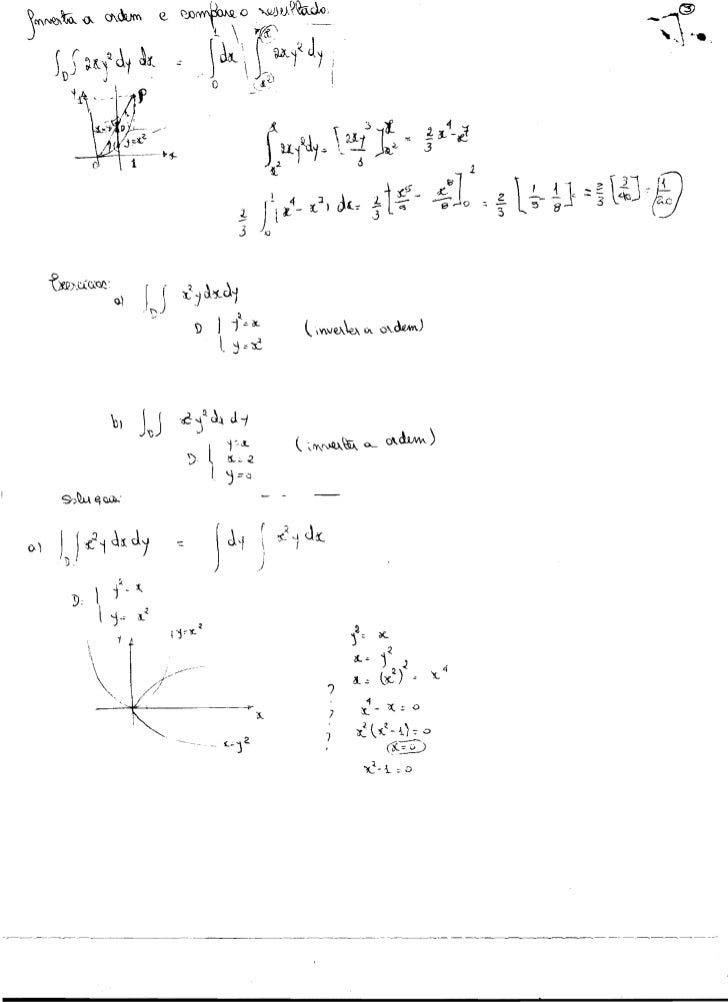 ③
Inverta a ordem e compare o resultado.
∫∫_D 2xy² dy dx = ∫_0^1 dx ∫_{x²}^{x} 2xy² dy
y
1
P
y=x²
0 1 x
∫_{x²}^{x} 2xy² dy = [2xy³/3]_{x²}^{x} = 2/3 x⁴ - x⁷
2/3 ∫_0^1 (x⁴ - x⁷) dx = 2/3 [x⁵/5 - x⁸/8]_0^1 = 2/3 [1/5 - 1/8] = 2/3 [3/40] = 1/20
Exercícios:
a) ∫∫_D x²y dx dy
D { y² = x
y = x²
(inverter a ordem)
b) ∫∫_D x²y² dx dy
D: { y = x
x = 2
y = 0
(inverter a ordem)
Solução:
a) ∫∫_D x²y dx dy = ∫ dy ∫ x²y dx
D: { y² = x
y = x²
y
y = x²
x
x = y²
y² = x
x = y²
? x = (x²)² = x⁴
? x⁴ - x = 0
? x²(x² - 1) = 0
x = 0
x² - 1 = 0